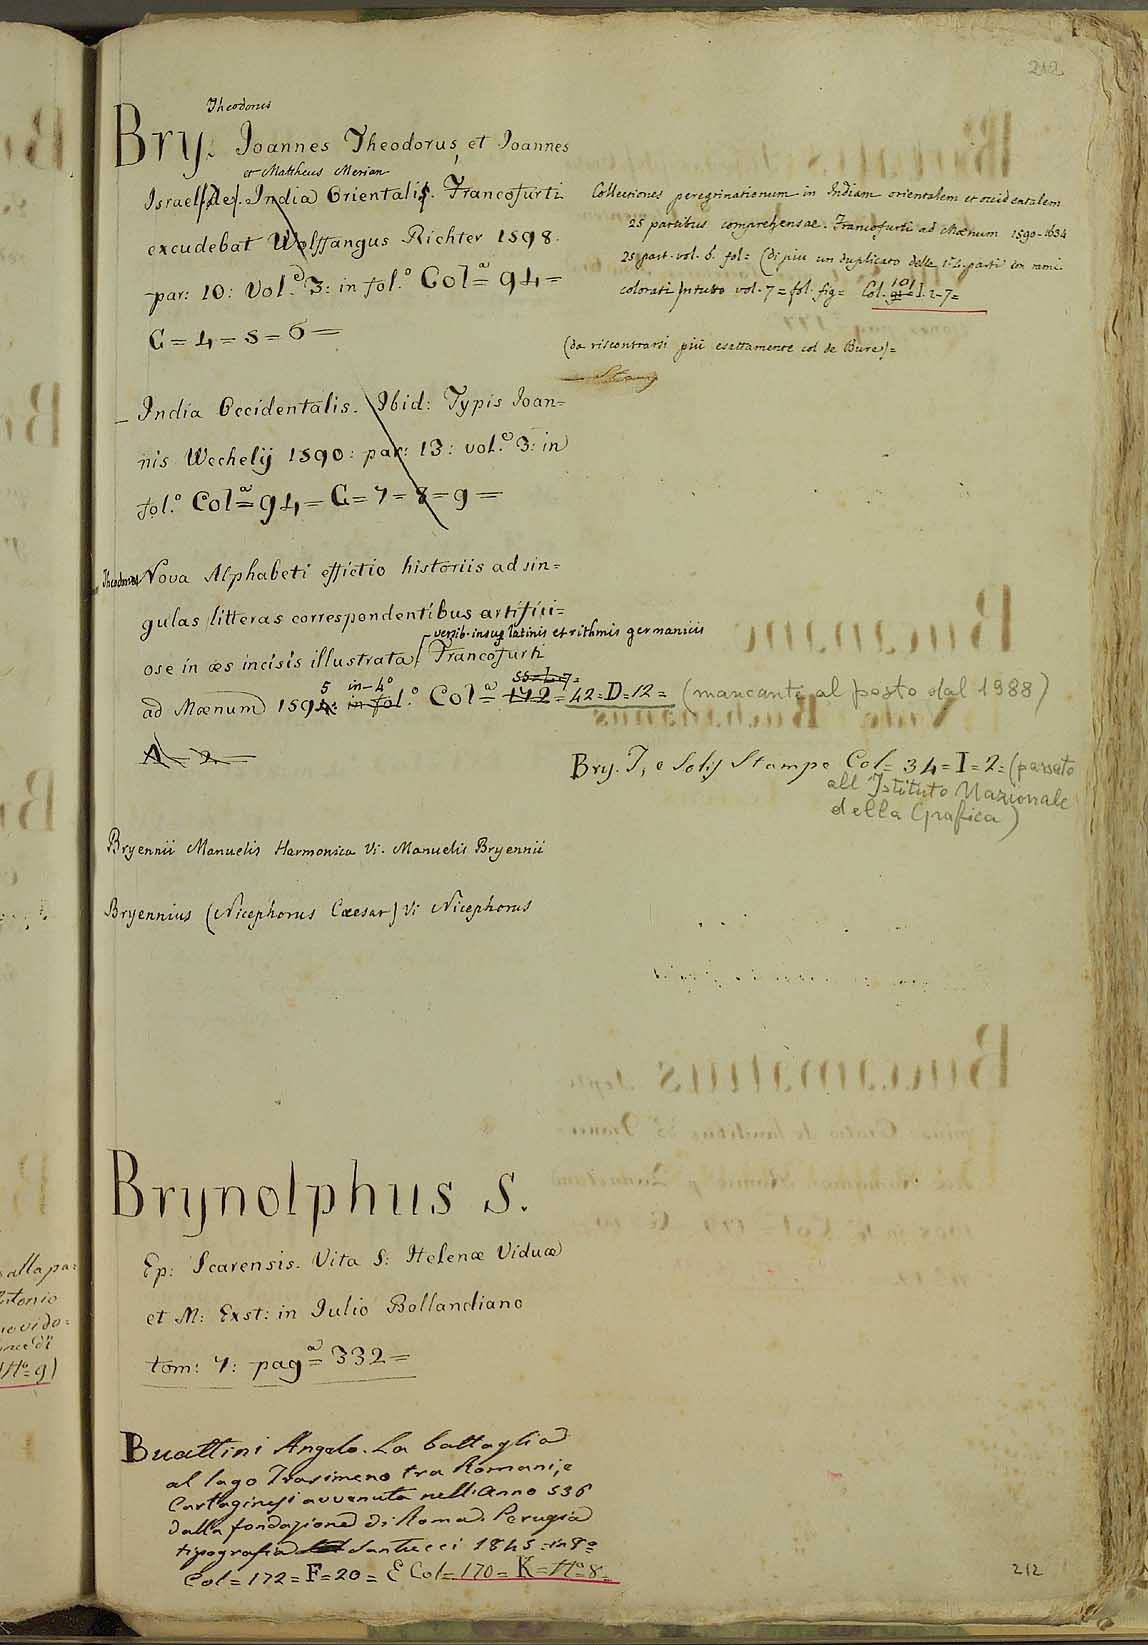 212
Theodorus
Bry. Joannes Theodorus, et Joannes
et Mattheus Merian
Israel [de]. India Orientalis. Francofurti
excudebat Wolffangus Richter 1598.
par: 10: Vol.e 3: in fol.o Col.a = 94 =
G = 4 = 5 = 6 =
Collectiones peregrinationum in Indiam orientalem et occidentalem
25 partibus comprehensae. Francofurti ad Mœnum 1590-1634
25 part. vol. 6. fol = (di piu un duplicato delle parti con rami
colorati) in tutto vol. 7 = fol. fig = Col. 101 = I. 1-7 =
(da riscontrarsi più esattamente col de Bure) =
India Occidentalis. Ibid: Typis Joan=
nis Wechelij 1590: par: 13: vol.e 3: in
fol.o Col.a = 94 = G = 7 = 8 = 9 =
Theodorus Nova Alphabeti effictio historiis ad sin=
gulas litteras correspondentibus artifici=
versib. insup. latinis et rithmis germanicis
ose in æs incisis illustrata [Francofurti
5 in-4o
ad Mœnum 159 in fol.o Col.a = 172 = 42 = D = 12 = (mancante al posto dal 1988)
A = 2 =
Bry. T, e Solis Stampe Col = 34 = I = 2 = (passato
all'Istituto Nazionale
della Grafica)
Bryennii Manuelis Harmonica Vi. Manuelis Bryennii
Bryennius (Nicephorus Cæsar) Vi Nicephorus
Brynolphus S.
Ep: Scarensis. Vita S: Helenæ Viduæ
et M: Exst: in Julio Bollandiano
tom: 7: pag.a = 332 =
Buattini Angelo. La battaglia
al lago Trasimeno tra Romani, e
Cartaginesi avvenuta nell'anno 536
dalla fondazione di Roma. Perugia
tipografia Santucci 1845 = in 8o =
Col = 172 = F = 20 = E Col = 170 = K = No = 8 =
alla pa:
Antonio
ovido=
di
No = 9)
212